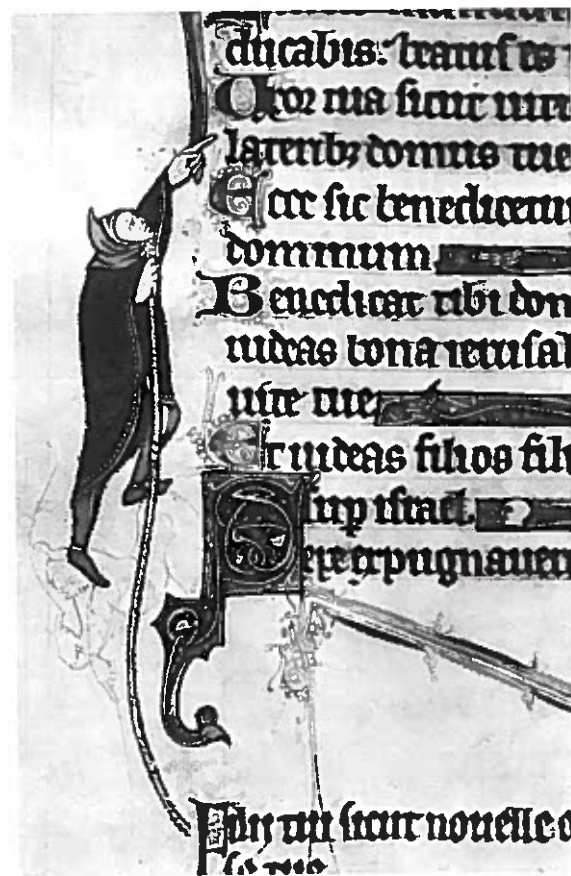 ducabis: beatus es
Uxor tua sicut uiti
laterib; domus tue
Ecce sic benedicetu
dominum
Benedicat tibi dom
uideas bona ierusal
uite tue
Et uideas filios fili
sup israel.
Sepe expugnauer
Filij tui sicut nouelle o
se tue